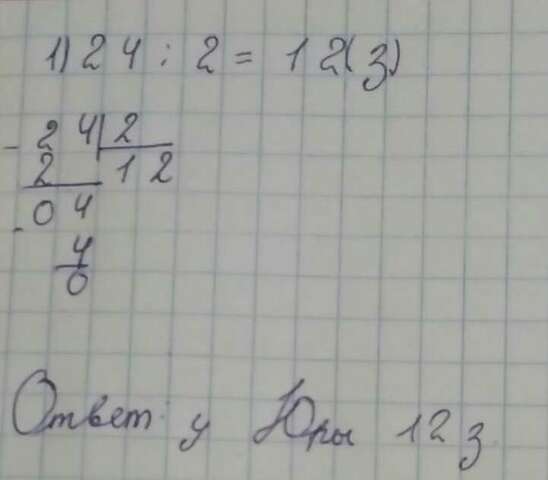 1) 24 : 2 = 12 (з)
- 24 | 2
2 12
- 04
4
0
Ответ: у Юры 12 з